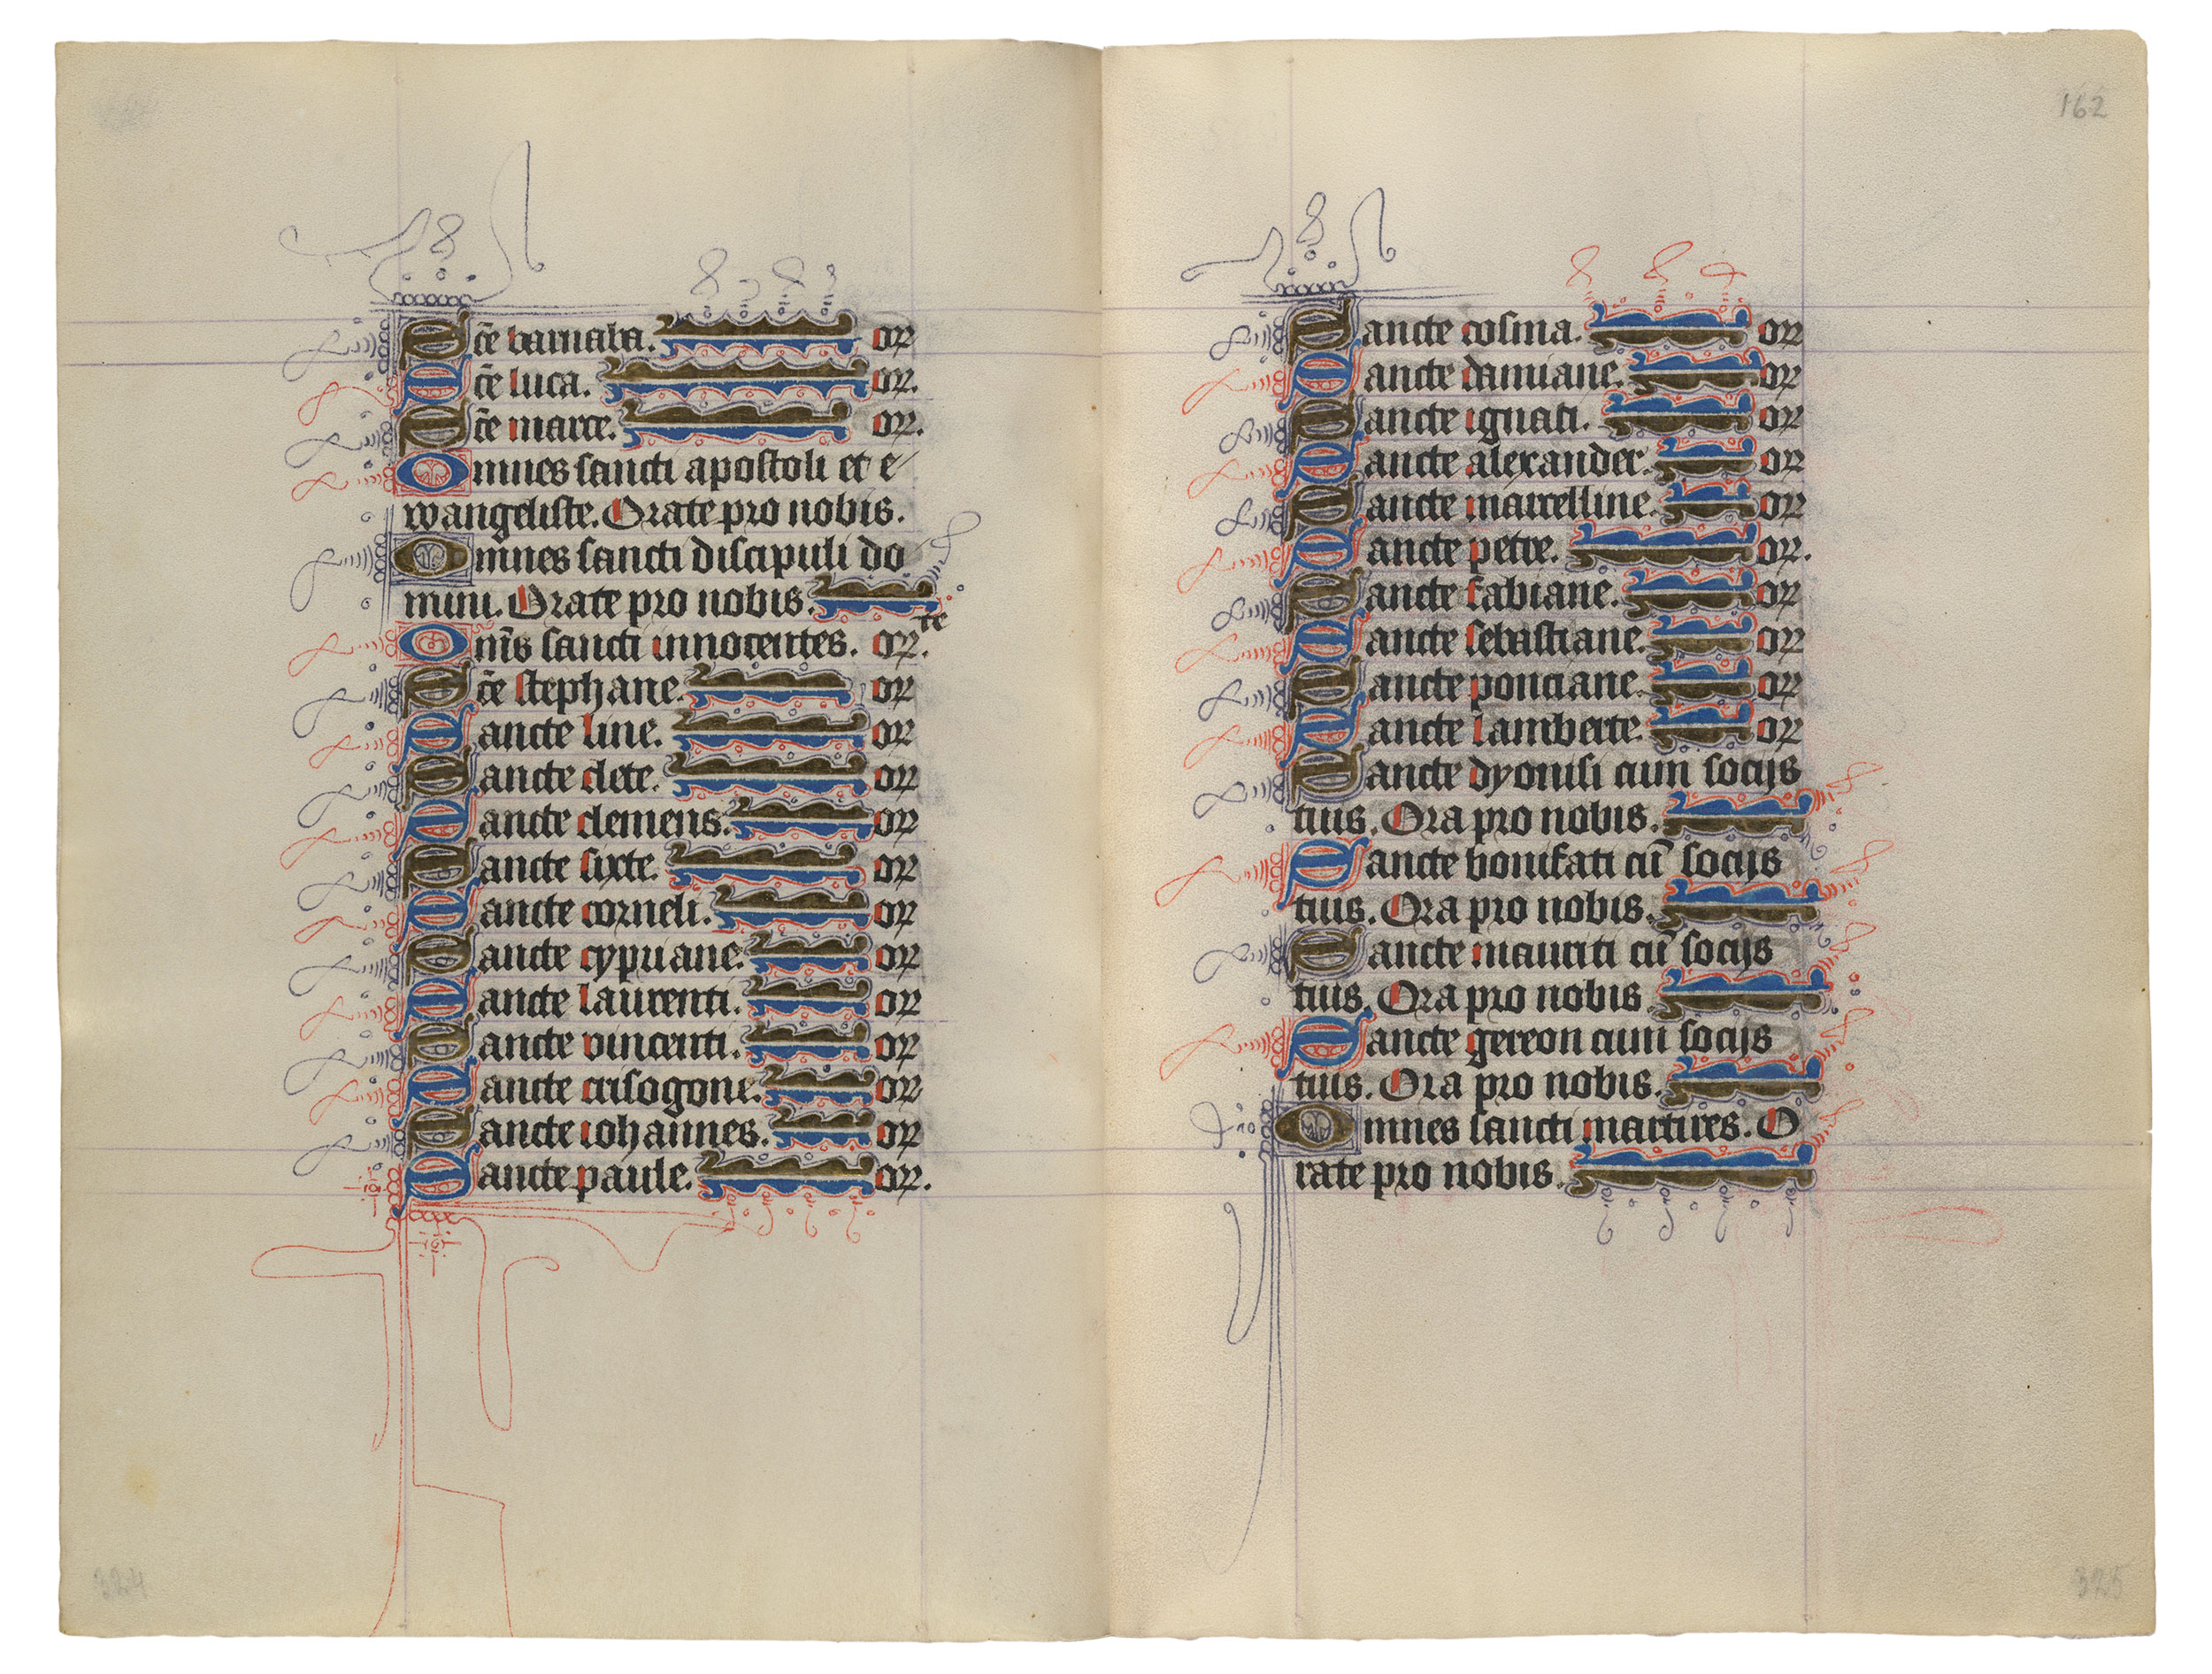 Sc̄e barnaba. or̄
Sc̄e luca. or̄.
Sc̄e marce. or̄.
Omnes sancti apostoli et e
wangeliste. Orate pro nobis.
Omnes sancti discipuli do
mini. Orate pro nobis.
Om̄s sancti innocentes. or̄te.
Sc̄e stephane. or̄
Sancte line. or̄
Sancte clete. or̄
Sancte clemens. or̄
Sancte sixte. or̄
Sancte corneli. or̄
Sancte cypriane. or̄
Sancte laurenti. or̄
Sancte vincenti. or̄
Sancte crisogone. or̄
Sancte iohannes. or̄
Sancte paule. or̄.
324
162
Sancte cosma. or̄
Sancte damiane. or̄
Sancte ignati. or̄
Sancte alexander. or̄
Sancte marcelline. or̄
Sancte petre. or̄.
Sancte fabiane. or̄
Sancte sebastiane. or̄
Sancte ponciane. or̄
Sancte lamberte. or̄
Sancte dyonisi cum socijs
tuis. Ora pro nobis.
Sancte bonifati cū socijs
tuis. Ora pro nobis.
Sancte mauriti cū socijs
tuis. Ora pro nobis
Sancte gereon cum socijs
tuis. Ora pro nobis.
Omnes sancti martires. O
rate pro nobis.
325